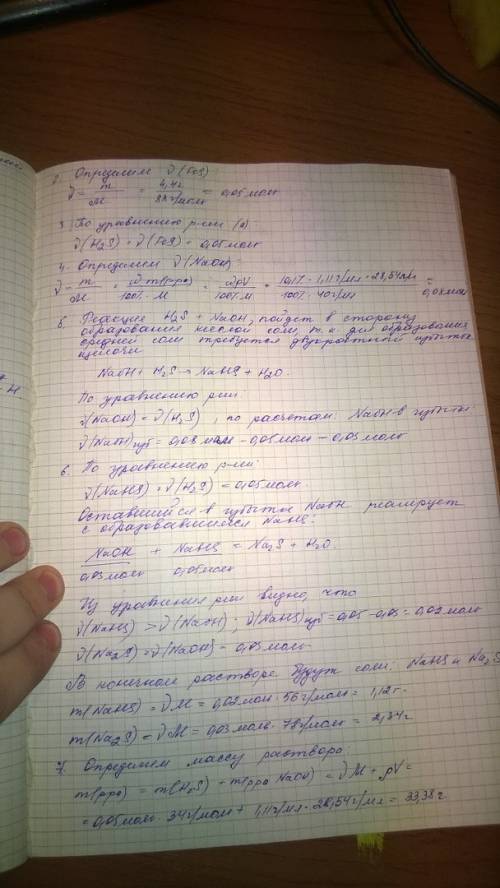 2. Определим ν(FeS)
ν = m/M = 4,4г/88г/моль = 0,05 моль
3. По уравнению р-ии (а)
ν(H₂S) = ν(FeS) = 0,05 моль
4. Определим ν(NaOH)
ν = m/M = ω·m(рра)/100%·M = ωρV/100%·M = 10,1%·1,11г/мл·28,54мл/100%·40г/мл = 0,08 моль
5. Реакция H₂S + NaOH, пойдет в сторону
образования кислой соли, т.к. для образования
средней соли требуется двухкратный избыток
щелочи
NaOH + H₂S = NaHS + H₂O.
По уравнению р-ии:
ν(NaOH) = ν(H₂S), по расчетам NaOH в избытке
ν(NaOH)изб = 0,08 моль - 0,05 моль = 0,03 моль
6. По уравнению р-ии:
ν(NaHS) = ν(H₂S) = 0,05 моль
Оставшийся в избытке NaOH реагирует
с образовавшимся NaHS:
NaOH + NaHS = Na₂S + H₂O
0,03 моль 0,05 моль
Из уравнения р-ии видно, что
ν(NaHS) > ν(NaOH); ν(NaHS)изб = 0,05 - 0,03 = 0,02 моль
ν(Na₂S) = ν(NaOH) = 0,03 моль
В конечном растворе будут соли: NaHS и Na₂S
m(NaHS) = νM = 0,02 моль · 56 г/моль = 1,12 г.
m(Na₂S) = νM = 0,03 моль · 78 г/моль = 2,34 г.
7. Определим массу раствора
m(рра) = m(H₂S) + m(рра NaOH) = νM + ρV =
= 0,05 моль · 34 г/моль + 1,11 г/мл · 28,54 г/мл = 33,38 г